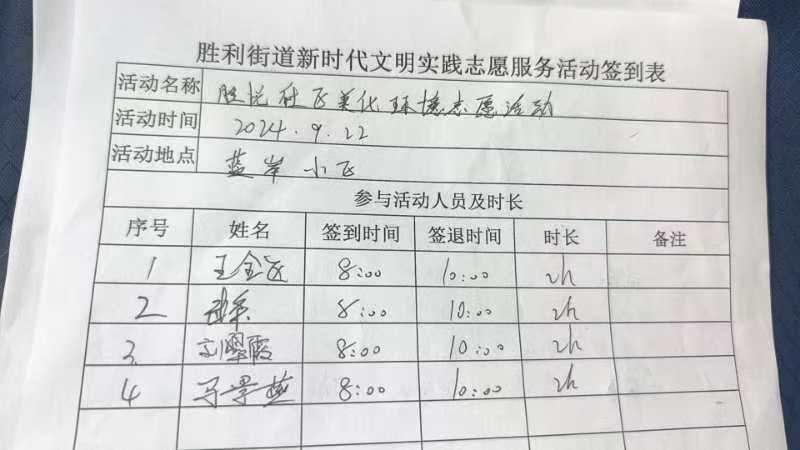 胜利街道新时代文明实践志愿服务活动签到表
活动名称 胜悦社区美化环境志愿活动
活动时间 2024.9.22
活动地点 蓝岸小区
参与活动人员及时长
序号 姓名 签到时间 签退时间 时长 备注
1 8:00 10:00 2h
2 8:00 10:00 2h
3. 刘翠霞 8:00 10:00 2h
4 8:00 10:00 2h